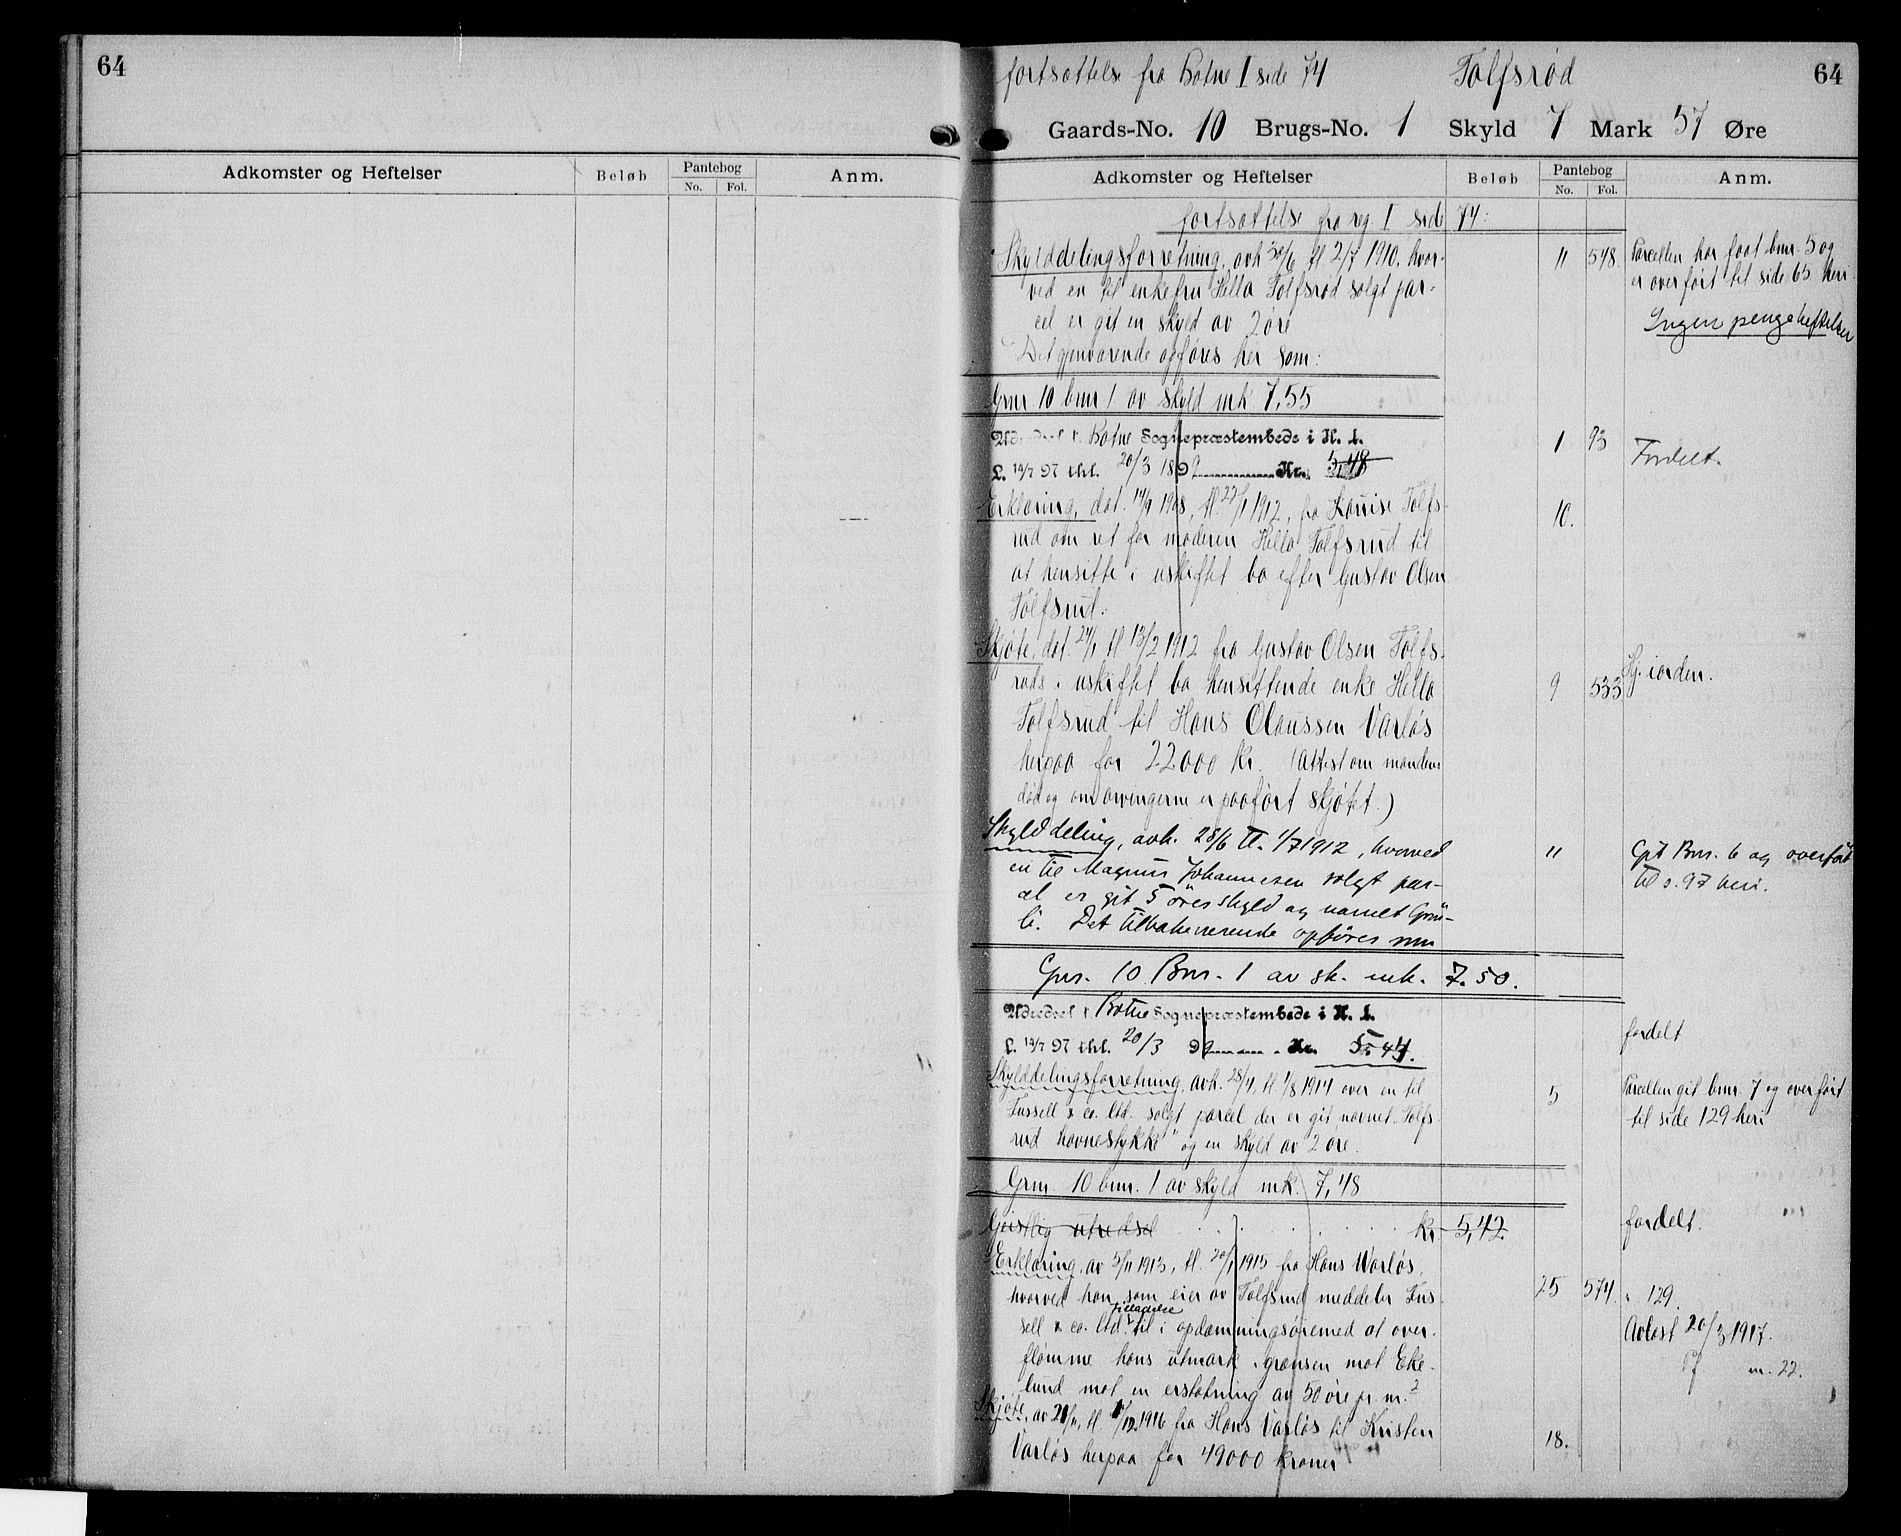 64
Adkomster og Heftelser
Beløb
Pantebog
No. Fol.
Anm.
fortsættelse fra Botne I side 74 Tolfsrød 64
Gaards-No. 10 Brugs-No. 1 Skyld 7 Mark 57 Øre
Adkomster og Heftelser
Beløb
Pantebog
No. Fol.
Anm.
fortsættelse fra reg I side 74:
Skylddelingsforretning, avh 30/6 tl 2/7 1910, hvor- 11 548. Parcellen har faat bnr. 5 og
ved en til enkefru Hella Tolfsrød solgt par- er overført til side 65 heri.
cel er git en skyld av 2 øre Ingen pengeheftelser
Det gjenværende opføres her som:
Grnr 10 bnr 1 av skyld mk 7,55
Udredsel t. Botne Sognepræstembede i H. t. 1 93 Fordelt.
L. 14/7 97 thl. 20/3 1899 Kr. 5,48
Erklæring, dat. 14/9 1908, tl. 27/1 1912, fra Louise Tolfs- 10.
rud om ret for moderen Hella Tolfsrud til
at hensitte i uskiftet bo efter Gustav Olsen
Tolfsrud.
Skjøte, dat. 24/1 tl 13/2 1912 fra Gustav Olsen Tolfs-
ruds i uskiftet bo hensittende enke Hella 9 533 Hj. i orden.
Tolfsrud til Hans Olaussen Varløs
herpaa for 22000 kr. (Attest om mandens
død og om arvingerne er paaført skjøtet.)
Skylddeling, avh. 28/6 tl. 1/7 1912, hvorved 11 Git Bnr. 6 og overført
en til Magnus Johannesen solgt par- til s. 97 heri.
cel er git 5 øres skyld og navnet Grøn-
li. Det tilbakeværende opføres som
Gnr. 10 Bnr. 1 av sk. mk. 7.50.
Udredsel t. Botne Sognepræstembede i H. t. fordelt
L. 14/7 97 thl. 20/3 99 Kr. 5.44.
Skylddelingsforretning, avh. 28/4, tl. 1/8 1914 over en til 5 Parcellen git bnr. 7 og overført
Fussell & co. Ltd. solgt parcel der er git navnet „Tolfs- til side 129 heri
rud havnestykke" og en skyld av 2 øre.
Grnr 10 bnr. 1 av skyld mk. 7,48
Geistlig utredsel . . . . . kr 5,42 fordelt.
Erklæring, av 5/11 1913, tl. 20/1 1915 fra Hans Varløs,
hvorved han som eier av Tolfsrud meddeler Fus- 25 574. 129.
sell & co. Ltd. tilladelse til i opdæmningsøiemed at over- Avløst 20/3 1917.
flømme hans utmark i grænsen mot Eke- m. 22.
lund mot en erstatning av 50 øre pr. m.²
Skjøte, av 21/11, tl. 1/12 1916 fra Hans Varløs til Kristen 18.
Varløs herpaa for 49000 kroner